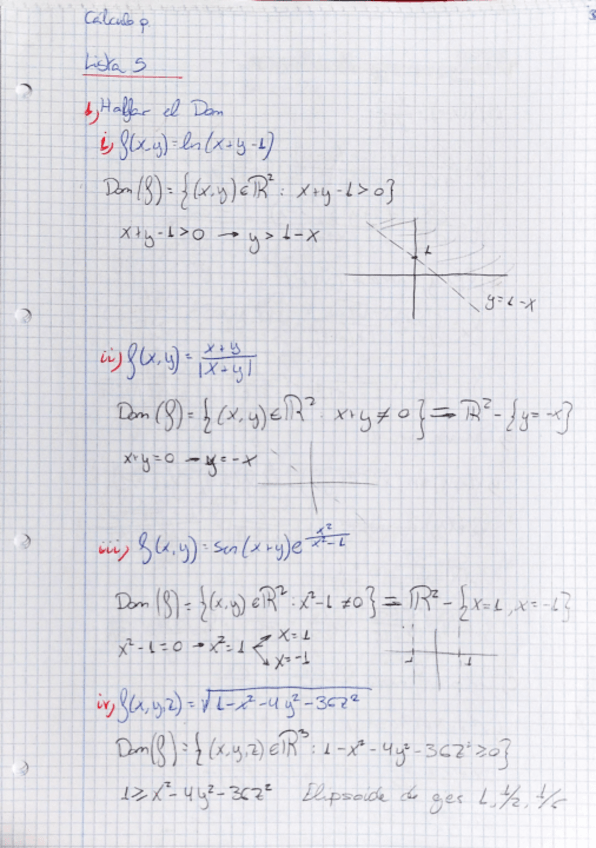 Cálculo p.
Lista 5
1) Hallar el Dom
i) f(x,y)=ln(x+y-1)
Dom(f)={(x,y)∈ℝ²: x+y-1>0}
x+y-1>0 → y>1-x
1
y=1-x
ii) f(x,y)=(x+y)/|x+y|
Dom(f)={(x,y)∈ℝ²: x+y≠0}=ℝ²-{y=-x}
x+y=0 → y=-x
iii) f(x,y)=sen(x+y)e^(x²/(x²-1))
Dom(f)={(x,y)∈ℝ²: x²-1≠0}=ℝ²-{x=1, x=-1}
x²-1=0 → x²=1 x=1
x=-1
-1 1
iv) f(x,y,z)=√(1-x²-4y²-36z²)
Dom(f)={(x,y,z)∈ℝ³: 1-x²-4y²-36z²≥0}
1≥x²-4y²-36z² Elipsoide de ejes 1, 1/2, 1/6